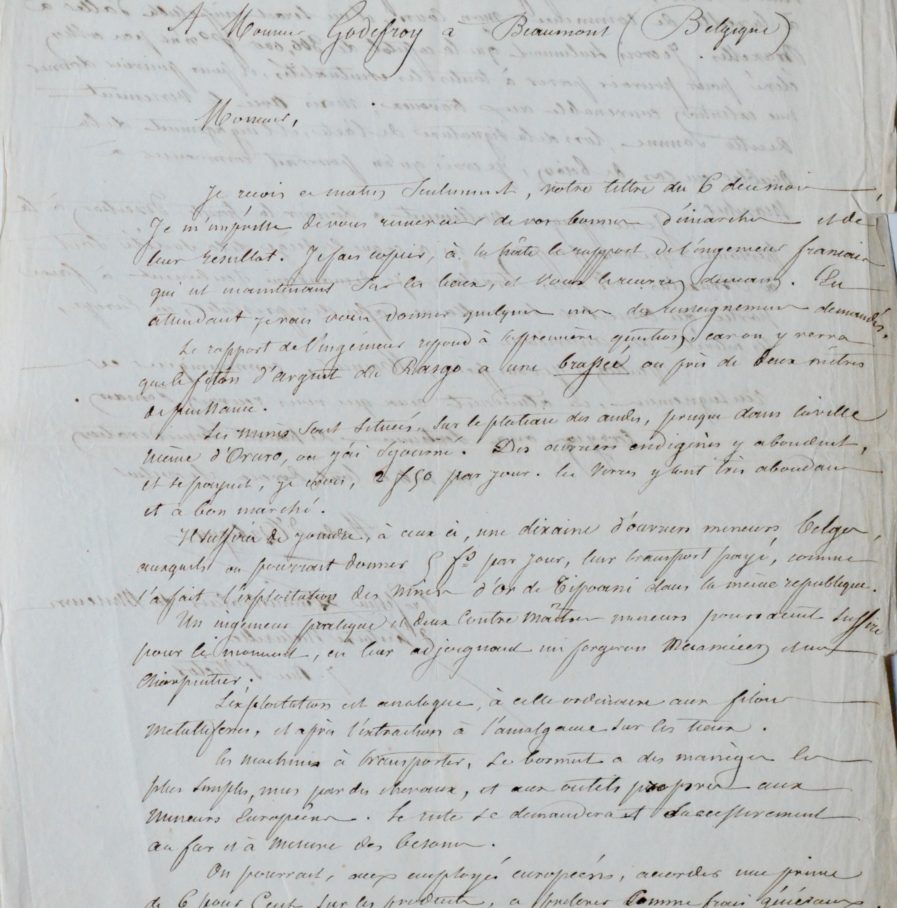 A Monsieur Godefroy à Beaumont (Belgique)
Monsieur,
Je reçois ce matin seulement, votre lettre du 6 de ce mois
Je m'empresse de vous remercier de vos bonnes démarches et de
leur résultat. Je fais copier, à la hâte le rapport de l'ingenieur francais
qui est maintenant sur les lieux, et vous le recevrez demain. En
attendant je vais vous donner quelques uns des renseignemens demandés.
Le rapport de l'ingenieur repond à la première question, car on y verra
que le filon d'argent du Rasgo a une brassée ou près de deux mètres
de puissance.
Les mines sont situées, sur le plateau des andes, presque dans la ville
même d'Oruro, ou j'ai sejourné. Des ouvriers indigènes y abondent,
et se payent, je crois, 2 f 50 par jour. les vivres y sont très abondans
et à bon marché.
Il suffira de joindre, à ceux ci, une dixaine d'ouvriers mineurs belges,
auxquels on pourrait donner 5 fs par jour, leur transport payé, comme
l'a fait l'exploitation des mines d'Or de Tipoani dans la même republique.
Un ingenieur pratique et deux contre maîtres mineurs pourraient suffire
pour le moment, en leur adjoignant un forgeron et un
charpentier.
L'exploitation est analogue, à celle ordinaire aux filons
metallifères, et après l'extraction à l'amalgame sur les lieux.
Les machines à transporter, se bornent a des manèges les
plus simples, mus par des chevaux, et aux outils propres aux
mineurs Européens. Le reste se demandera successivement
au fur et à mesure des besoins.
On pourrait, aux employés européens, accorder une prime
de 6 pour Cent sur les produits, a prélever comme frais généraux